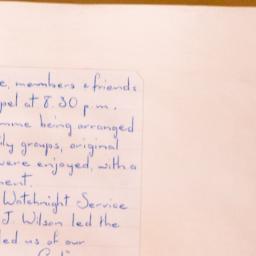 e, members & friends
pel at 8.30 p.m.
mme being arranged
ily groups, original
were enjoyed, with a
ment.
Watchnight Service
J. Wilson led the
led us of our